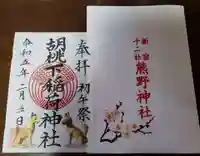 奉拝
初午祭
胡桃下稲荷神社
令和五年二月五日
新宿
十二社
熊野神社